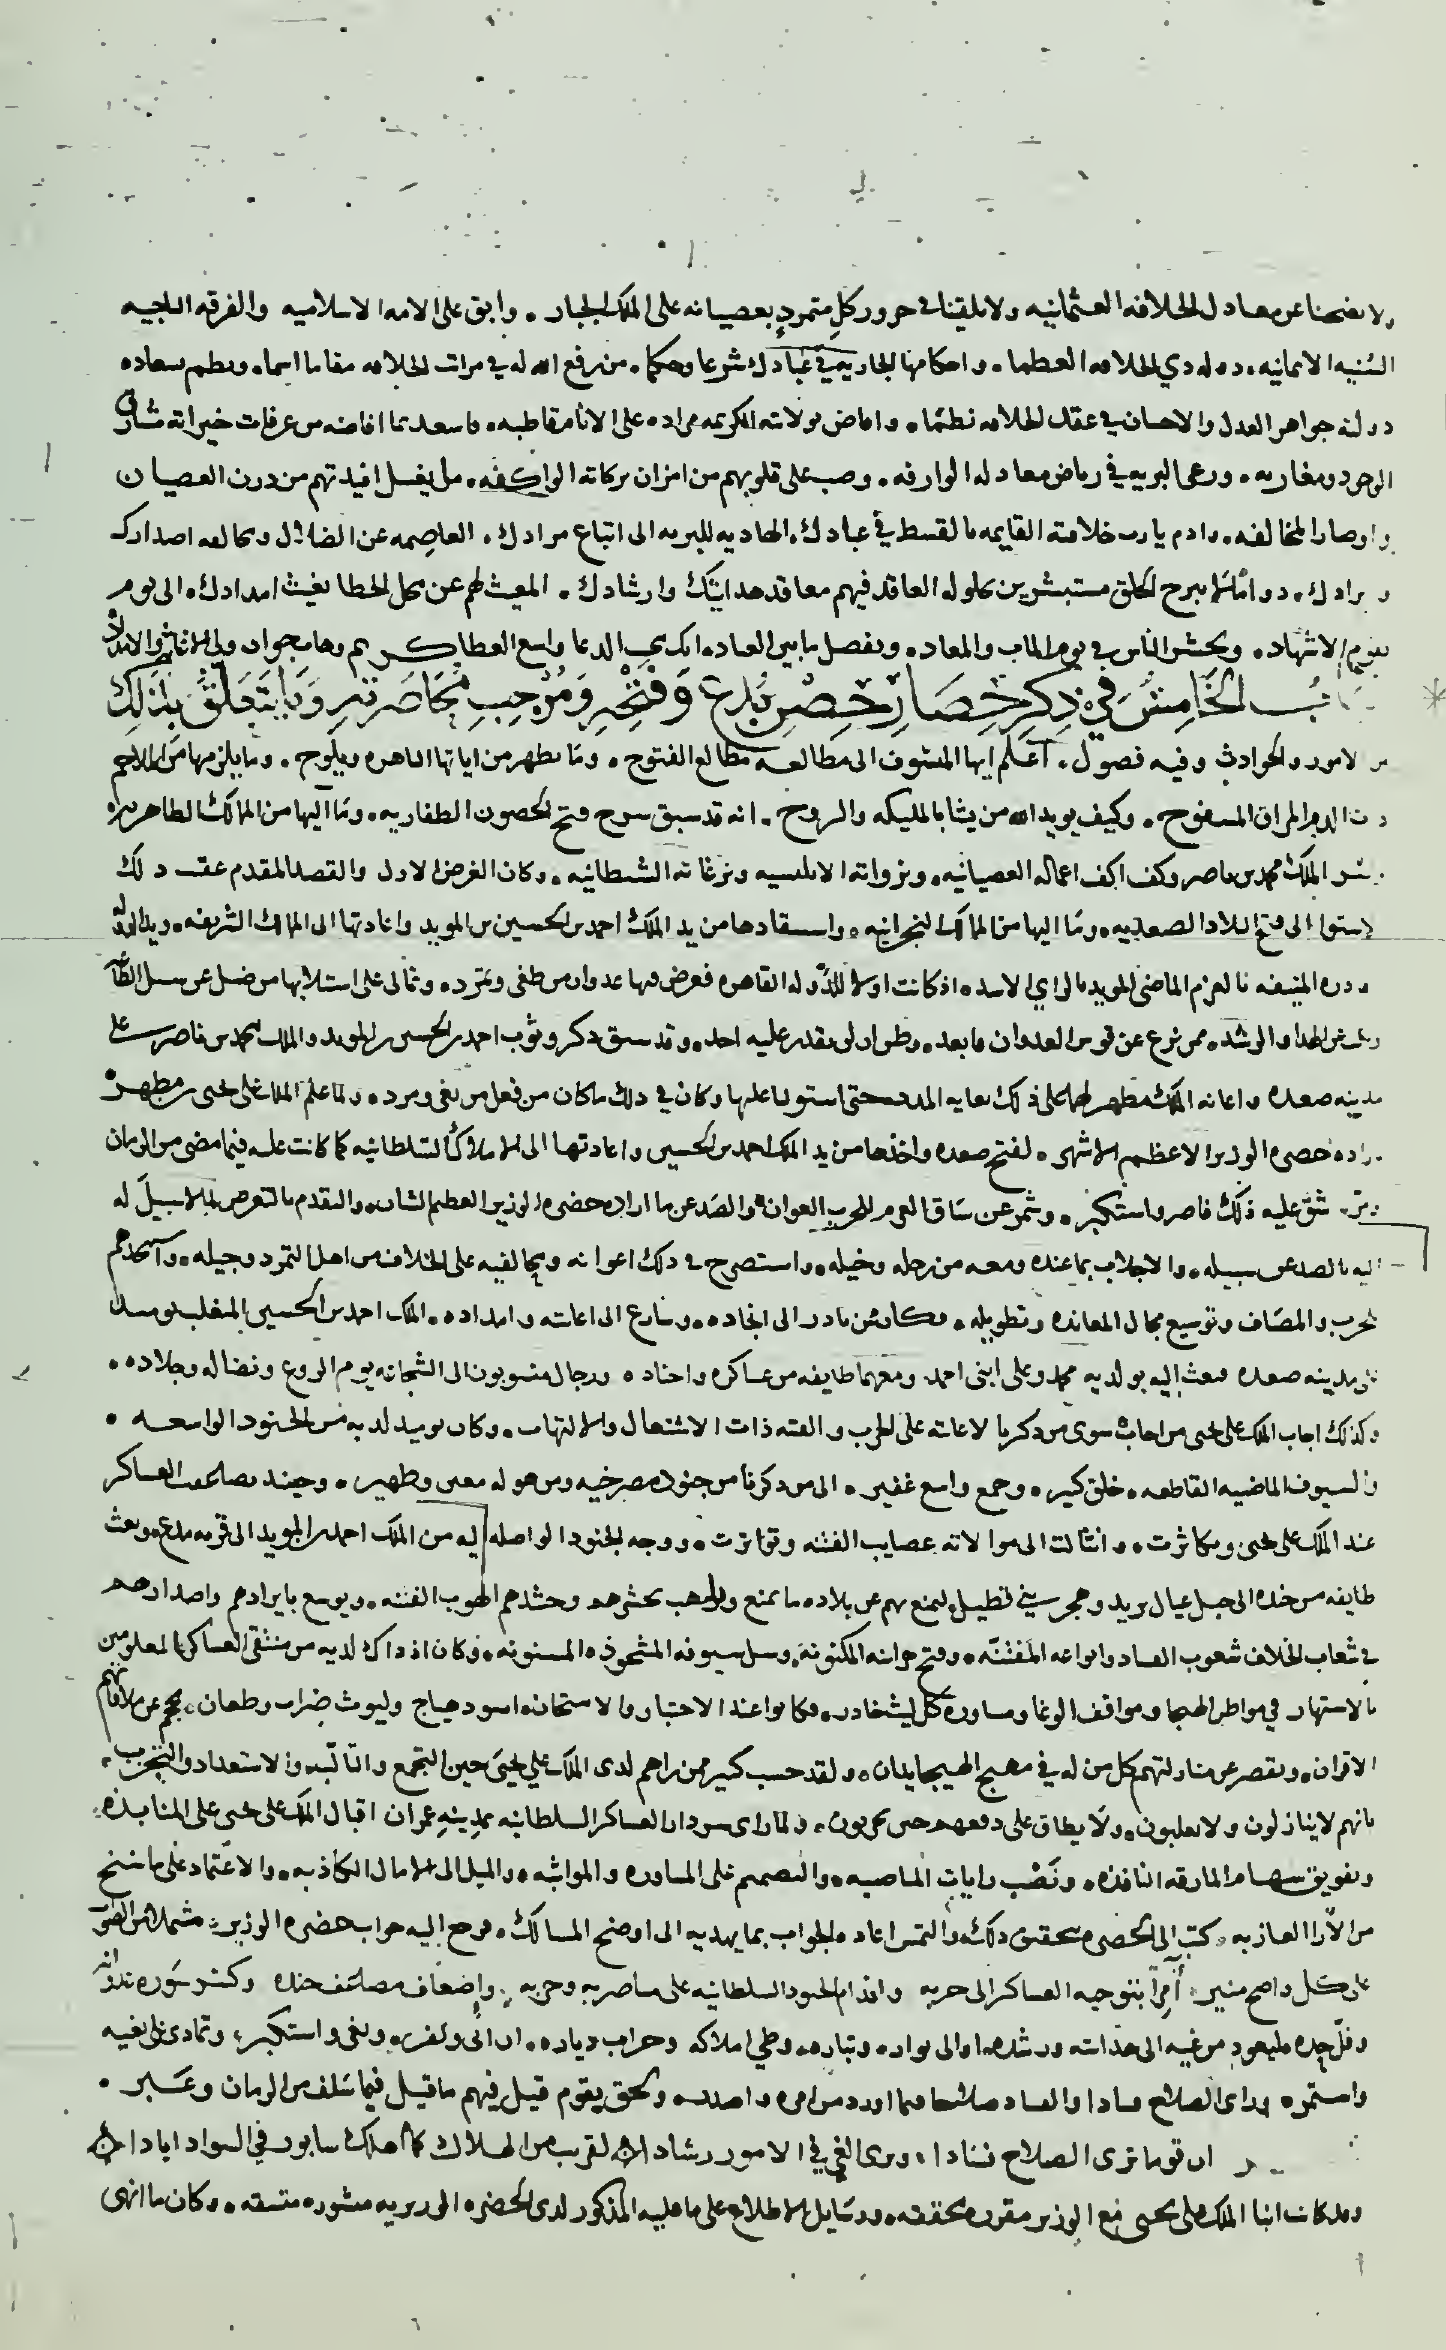 ولا تفضحنا عن معادل الخلافه العثمانيه ولا تلقنا في حرور كل متمرد بعصيانه على الملك الجبار . وابق على الامه الاسلاميه والفرقه الناجيه
السنيه الايمانيه . دوله ذي الخلافه العظما . واحكامها الجاريه في عبادك شرعا وحكما . من رفع الله له في مراتب الخلافه مقاما اسما . ونظم بسعاده
دولته جواهر العدل والاحسان في عقد الخلافه نظما . وافاض بولايته الكريمه مراده على الانام قاطبه . فاسعد بما افاضه من عرفات خيراته مشارق
الوجود ومغاربه . ورعى البريه في رياض معادله الوارفه . وصب على قلوبهم من امزان بركاته الواكفه . ما يغسل افيدتهم من درن العصيان
واوصار المخالفه . وادم يا رب خلافته القايمه بالقسط في عبادك . الهاديه للبريه الى اتباع مرادك . العاصمه عن الضلال ومخالفه اصدارك
و برادك . دواما لا يبرح الخلق مستبشرين بحلوله العاقد فيهم معاقد هدايتك وارشادك . المغيث لهم عن محل الخطا بغيث امدادك . الى يوم
يقوم الاشهاد . ويحشر الناس في يوم الماب والمعاد . وتفصل ما بين العباد . انك مجيب الدعا واسع العطا كريم وهاب جواد
باب الخامس في ذكر حصار حصن مدع وفتحه وموجب محاصرته وما يتعلق بذلك
من الامور والحوادث وفيه فصول . اعلم ايها المتشوف الى مطالعه مطالع الفتوح . وما يظهر من اياتها الباهره ويلوح . وما يلزمها من الملاحم
ذات الدم المهراق المسفوح . وكيف يويد الله من يشا بالمليكه والروح . انه قد سبق شرح فتح الحصون الظفاريه . وما اليها من الممالك الظاهريه
الملك محمد بن ناصر وكف اكف اعماله العصيانيه . ونزواته الابليسيه ونزغاته الشيطانيه . وكان الغرض الاول والقصد المقدم عقب ذلك
الى فتح البلاد الصعديه . وما اليها من الممالك النجرانيه . واستنقاذها من يد الملك احمد بن الحسين بن المويد واعادتها الى الممالك الشريفه .
المنيفه بالعزم الماضي المويد بالراي الاسد . اذ كانت اولا للدوله القاهره فعرض فيها عدوان من طغى وتمرد . وتمالى على استلابها من ضل عن سبيل
الهدا والرشد . ممن نزع عن قوس العدوان فابعد . وظن ان لن يقدر عليه احد . وقد سبق ذكر وثوب احمد بن الحسين بن المويد والملك محمد بن ناصر على
مدينه صعده واعانه الملك مطهر لهما على ذلك حتى استوليا عليها وكان في ذلك ما كان من فعل من بغى ومرد . ولما علم الملك علي يحيى بن مطهر
حضره الوزير الاعظم الاشهر . لفتح صعده واخذها من يد الملك احمد بن الحسين واعادتها الى الاملاك السلطانيه كما كانت عليه فيما مضى من الزمان
شق عليه ذلك فاصر واستكبر . وشمر عن ساق العزم للحرب العوان والصد عن ما اراده حضره الوزير العظيم الشان . والتقدم بالتعرض لما لا سبيل له
اليه بالصد عن سبيله . والاجلاب بما عنده ومعه من رجله وخيله . واستصرخ في ذلك اعوانه ومحالفيه على الخلاف من اهل التمرد وجيله .
للحرب والمصاف وتوسيع مجال المعانده وتطويله . فكان من بادر الى انجاده . وسارع الى اعانته وامداده . الملك احمد بن الحسين المتغلب
على مدينه صعده فبعث اليه بولديه محمد وعلي ابني احمد ومعهما طايفه من عساكره واجناده ورجال منسوبون الى الشجاعه يوم الروع ونضاله وجلاده .
وكذلك اجاب الملك علي يحيى من اجاب سوى من ذكر بالاعانه على الحرب والفتنه ذات الاشتعال والالتهاب . وكان يوميذ لديه من الجنود الواسعه .
والسيوف الماضيه القاطعه . خلق كبير . وجمع واسع غفير . الى من ذكرنا من جنود مصرخيه ومن هو له معين وظهير . وحينيذ تضاعفت العساكر
عند الملك علي يحيى وتكاثرت . وانثالت الى موالاته عصايب الفتنه وتواترت . ووجه الجنود الواصله اليه من الملك احمد بن المويد الى قريه مدع . وبعث
طايفه من جنده الى جبل عيال يزيد وهجر ليمنع بهم عن بلاده ما يمنع وحشدهم الهبوب الفتنه . ويوسع بايرادهم واصدارهم
في شعاب الخلاف شعوب الفساد وانواعه المفتنه . وفتح خزاينه المكنونه . وسل سيوفه المشحوذه المسنونه . وكان اذ ذاك لديه من منتقى العساكر المعلومين
بالاشتهار في مواطن الهيجا ومواقف الوغا ومساوره كل ليث خادر . فكانوا عند الاختبار والامتحان . اسود هياج وليوث ضراب وطعان . يحجم عن ملاقاتهم
الاقران . ويقصر عن منازلتهم كل من له في مهيج الهيجا يدان . ولقد حسب كثير ممن راهم لدى الملك علي يحيى حين التجمع والتالب . والاستعداد والتحزب .
بانهم لا ينازلون ولا يغلبون . ولا يطاق على دفعهم حين يحربون . ولما راى سردار العساكر السلطانيه بمدينه عمران اقبال الملك علي يحيى على المنابذه .
وتفويق سهام المارقه النافذه . ونصب رايات المناصبه . والتصميم على المساوره والمواثبه . والميل الى الامال الكاذبه . والاعتماد على ما سنح
من الارا العازبه . كتب الى الحضره بتحقيق ذلك . والتمس اعاده الجواب بما يهديه الى اوضح المسالك . فرجع اليه جواب حضره الوزير .
على كل واضح منير . امرا بتوجيه العساكر الى حربه واقدام الجنود السلطانيه على مناصبته وحربه . واضعاف مضاعف جنده وكسر سوره
وفل حده ليعود من غيه الى هدايته ورشده . او الى بواره وتباره . وطي املاكه وخراب دياره . ان ابى ونفر . وبغى واستكبر . وتمادى على بغيه
واستمر . وراى الصلاح فسادا والفساد صلاحا فيما اورد من امره واصدر . ولحق بقوم قيل فيهم ما قيل فيما سلف من الزمان وغبر .
ان قوما ترى الصلاح فسادا . وترى الغي في الامور رشادا لقريب من الهلاك كما اهلك سابور في السواد ايادا
ولما كانت انبا الملك علي يحيى مع الوزير مقرره محققه . ورسايل الاطلاع على ما عليه المذكور لدى الحضره الوزيريه منشوره متسقه . وكان ما انهى